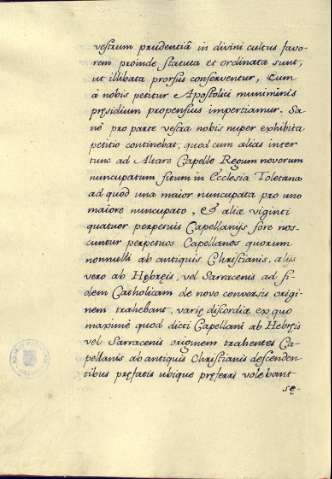 vestrum prudentiâ in divini cultus favo-
rem proinde statuta et ordinata sunt,
ut illibata prorsus conserventur, Cum
â nobis petitur Apostolici muniminis
pręsidium propensius impertiamur. Sa-
nè pro parte vestra nobis nuper exhibita
petitio continebat, quod cum alias inter
tunc ad Altare Capellę Regum novorum
nuncupatum situm in Ecclesia Toletana
ad quod una maior nuncupata pro uno
maiore nuncupato, & alię viginti
quatuor perpetuis Capellanijs fore nos-
cuntur perpetuos Capellanos quorum
nonnulli ab antiquis Christianis, alij
vero ab Hębręis, vel Sarracenis ad fi-
dem Catholicam de novo conversis origi-
nem trahebant, varię discordię ex quo
maximè quod dicti Capellani ab Hebręis
vel Sarracenis originem trahentes Ca-
pellanis ab antiquis Christianis descenden-
tibus pręfatis ubique pręferri volebant
sę-